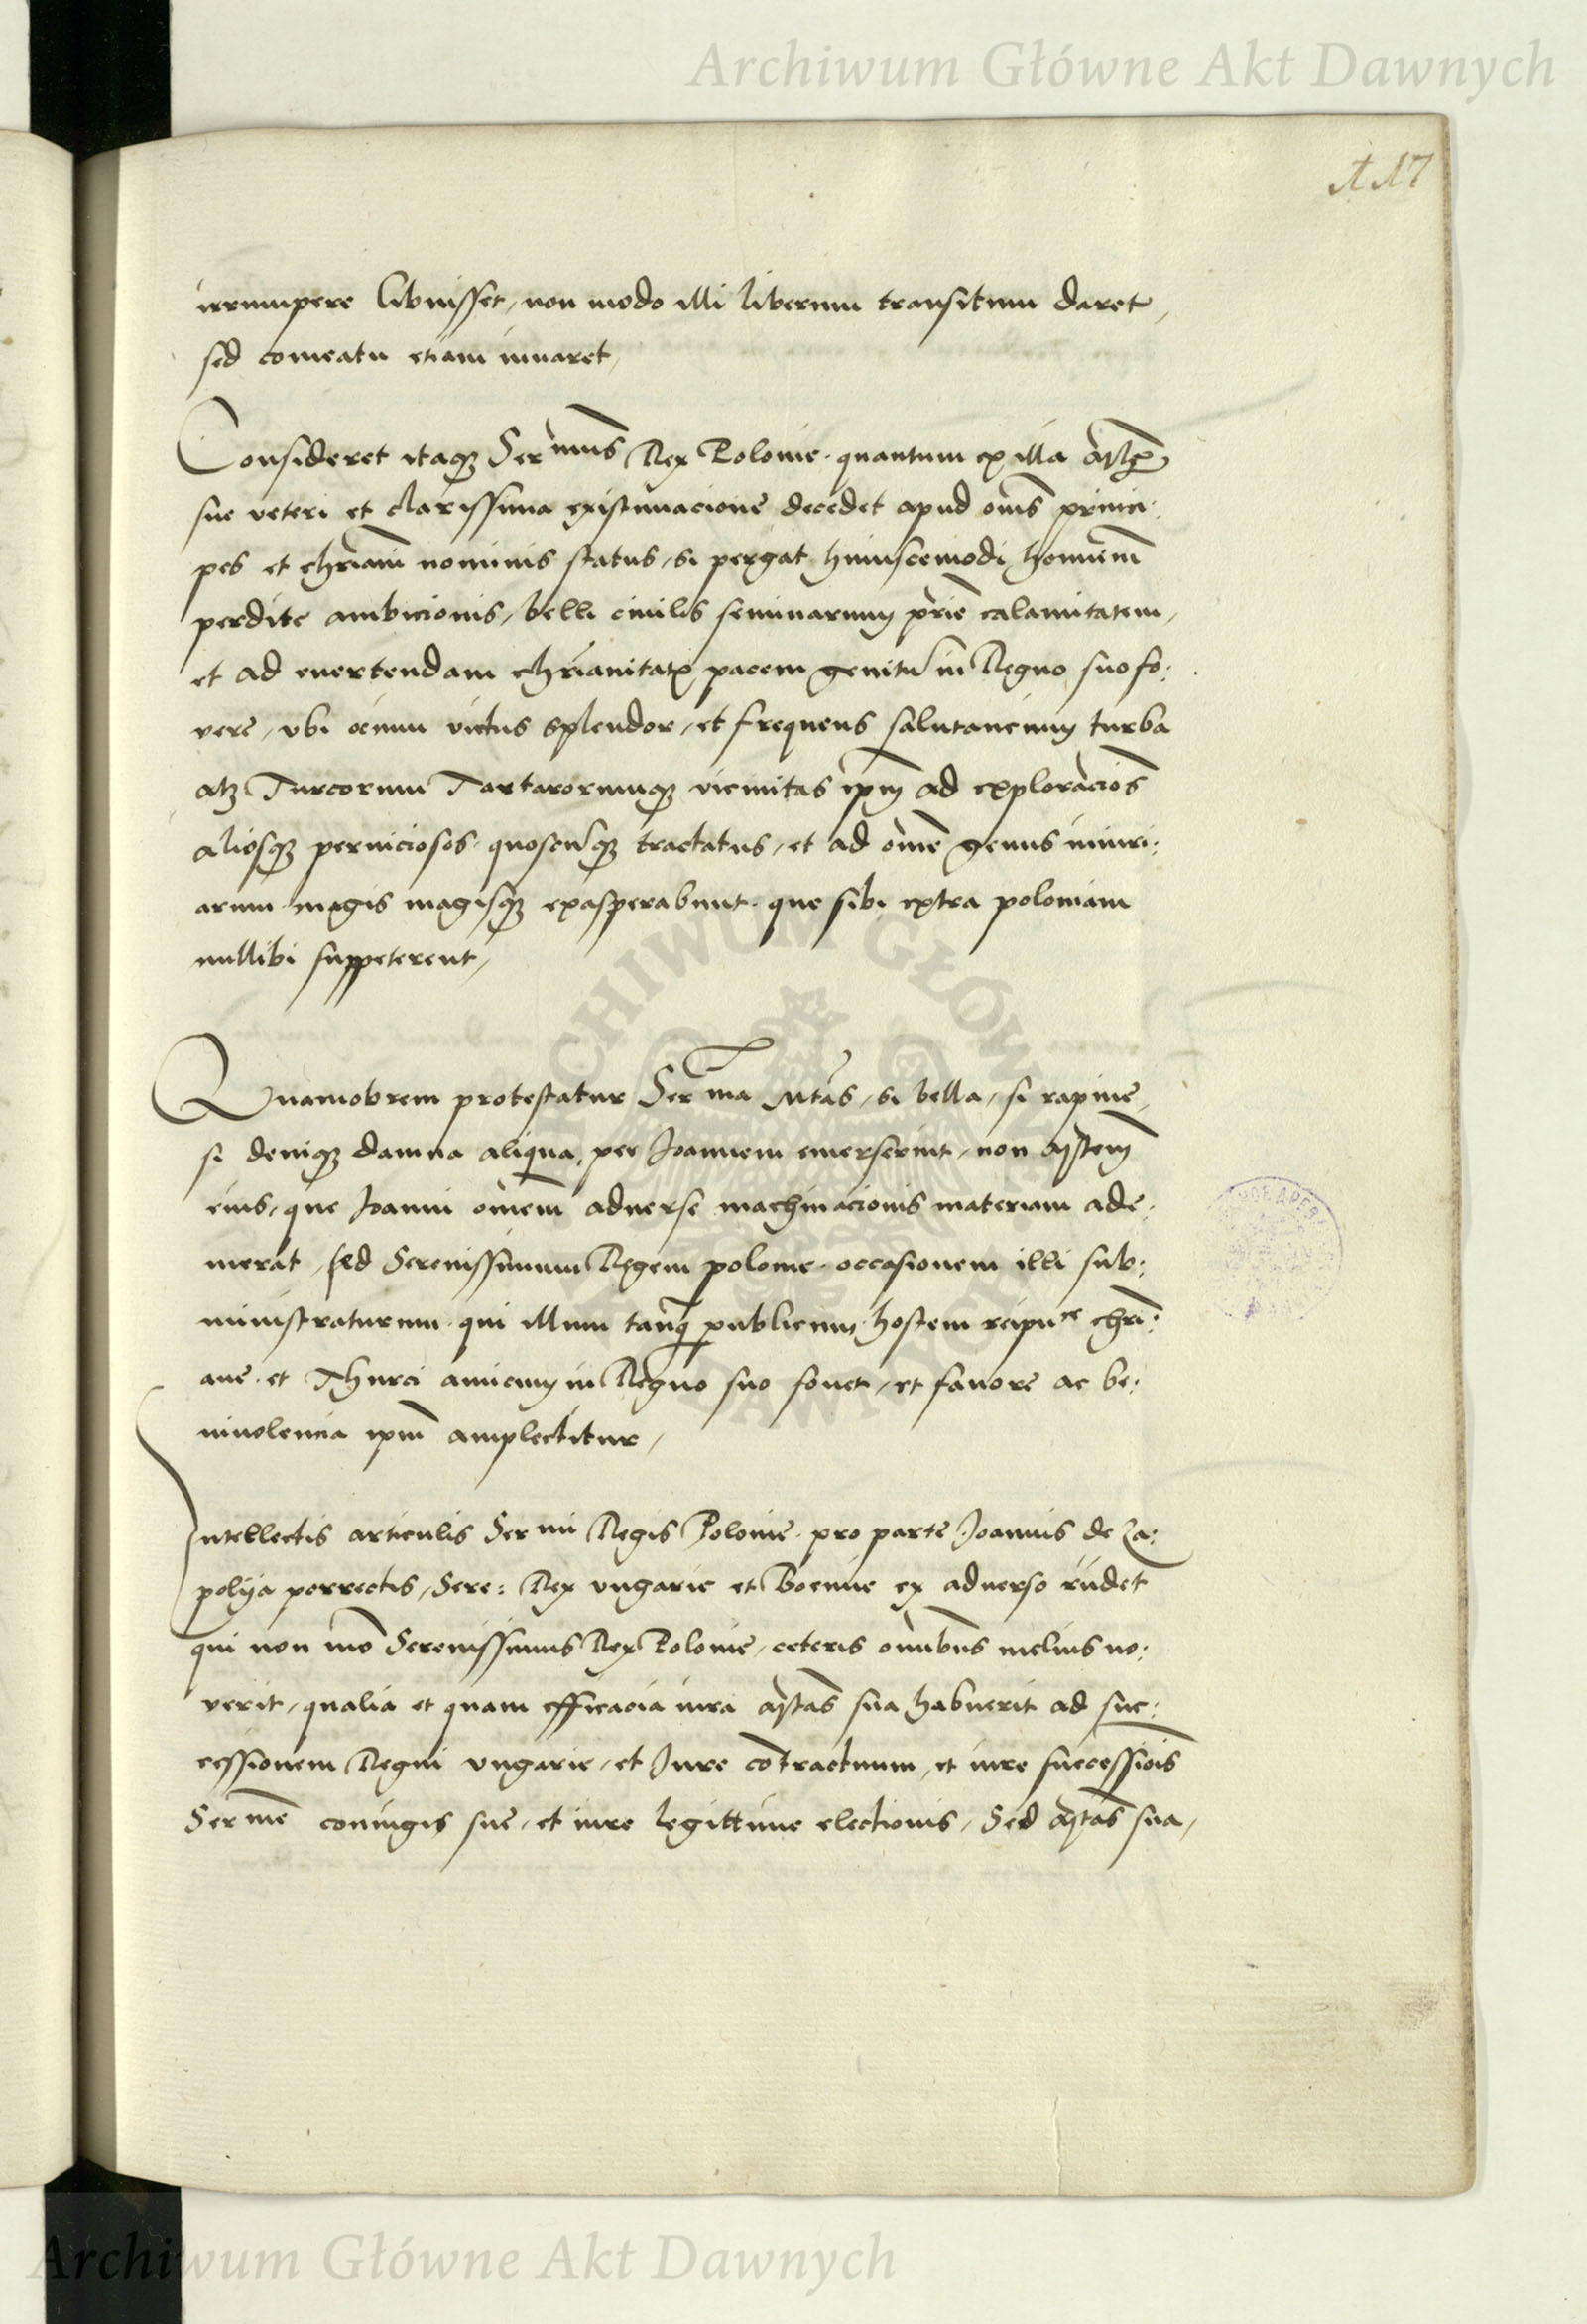 Archiwum Główne Akt Dawnych
117
irrumpere libuisset, non modo illi liberum transitum daret,
sed comeatu etiam iuuaret,
Consideret itaq3 Ser mus Rex Polonie. quantum ex illa Mtis
sue veteri et clarissima existimacione decedet apud oms princi:
pes et chriani nominis status, si pergat huiuscemodi hominem
perdite ambicionis, belli ciuilis seminarium prie calamitatem,
et ad euertendam chrianitatis pacem genitu in Regno suo fo:
vere, vbi oemu victus splendor, et frequens salutancium turba
atq3 Turcorum Tartarorumq3 vicinitas ipm ad exploracios
aliosq3 perniciosos quoscu(n)q3 tractatus, et ad ome genus iniuri:
arum magis magisq3 exasperabunt. que sibi extra poloniam
nullibi suppeterent,
Quamobrem protestatur Ser ma Mtas, si bella, si rapine,
si deniq3 damna aliqua per Joannem emerserint, non Mtem
eius, que Joanni omem aduerse machinacionis materiam ade:
merat, sed Serenissimum Regem polonie. occasionem illi sub:
ministraturum. qui illum tanq publicum hostem reipu ce chri:
ane. et Thurci amicum in Regno suo fouet, et fauore ac be:
niuolencia ipm amplectitur,
Intellectis articulis Ser mi Regis Polonie. pro parte Joannis de Za:
polya porrectis, Sere: Rex vngarie et Boemie ex aduerso rndet
qui non mo Serenissimus Rex Polonie, ceteris omibus melius no:
verit, qualia et quam efficacia iura Mtas sua habuerit ad suc:
cessionem Regni vngarie, et Jure contractuum, et iure successiois
Ser me coniugis sue, et iure legittime electionis, Sed Mtas sua,
ARCHIWUM GŁÓWNE
AKT DAWNYCH
Archiwum Główne Akt Dawnych